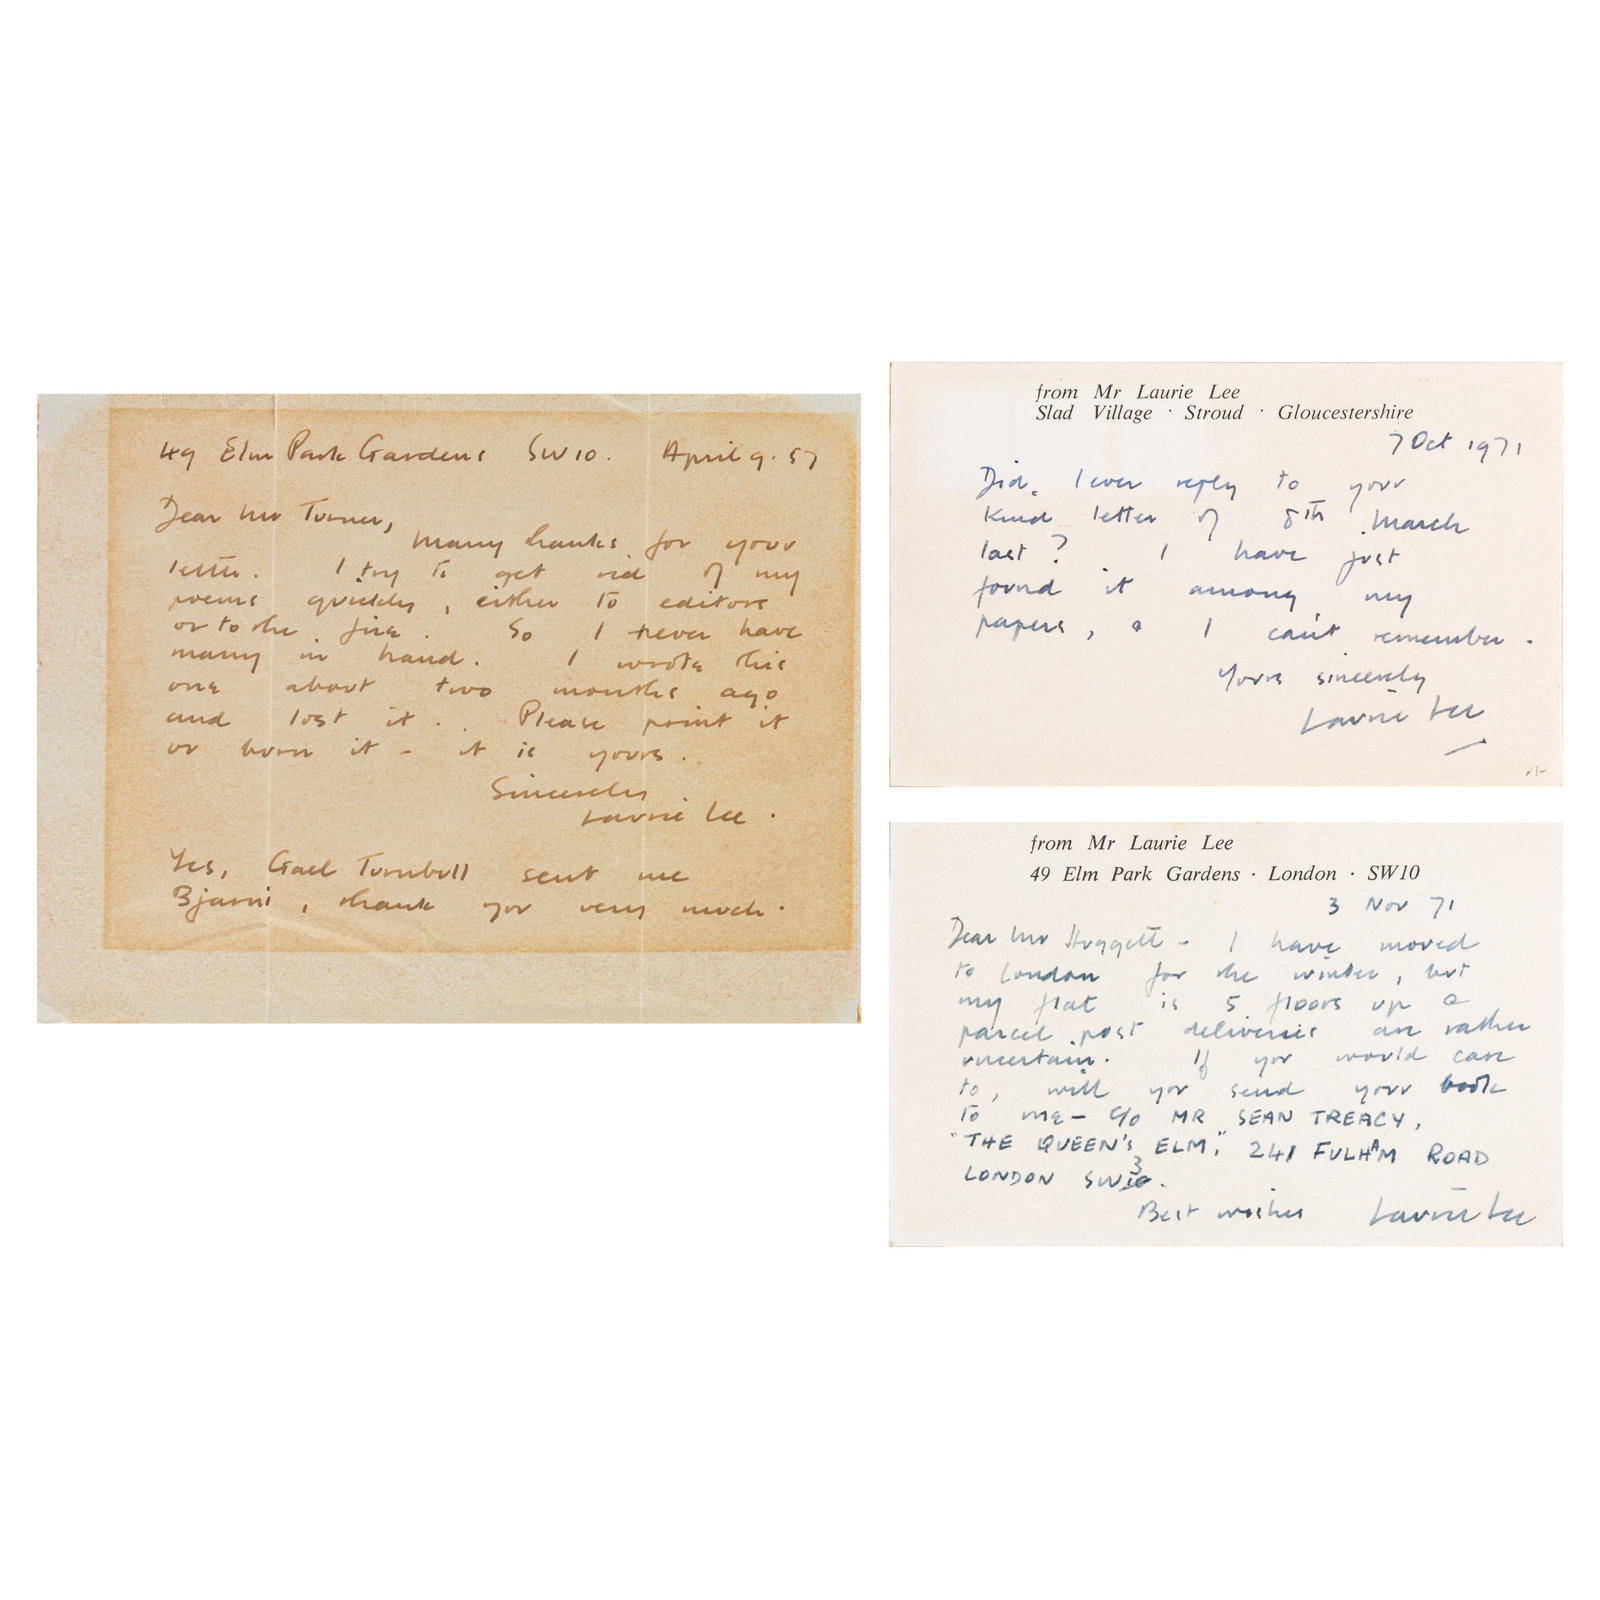 49 Elm Park Gardens SW10. April 9. 57
Dear Mr Turner,
Many thanks for your
letter. I try to get rid of my
poems quickly, either to editors
or to the fire. So I never have
many in hand. I wrote this
one about two months ago
and lost it. Please print it
or burn it - it is yours.
Sincerely
Laurie Lee.
Yes, Gael Turnbull sent me
Bjarni, thank you very much.
from Mr Laurie Lee
Slad Village · Stroud · Gloucestershire
7 Oct 1971
Did I ever reply to your
kind letter of 8th March
last? I have just
found it among my
papers, & I can't remember.
Yours sincerely
Laurie Lee
from Mr Laurie Lee
49 Elm Park Gardens · London · SW10
3 Nov 71
Dear Mr Huggett - I have moved
to London for the winter, but
my flat is 5 floors up &
parcel post deliveries are rather
uncertain. If you would care
to, will you send your book
to me - c/o MR SEAN TREACY,
"THE QUEEN'S ELM," 241 FULHAM ROAD
LONDON SW3.
Best wishes Laurie Lee